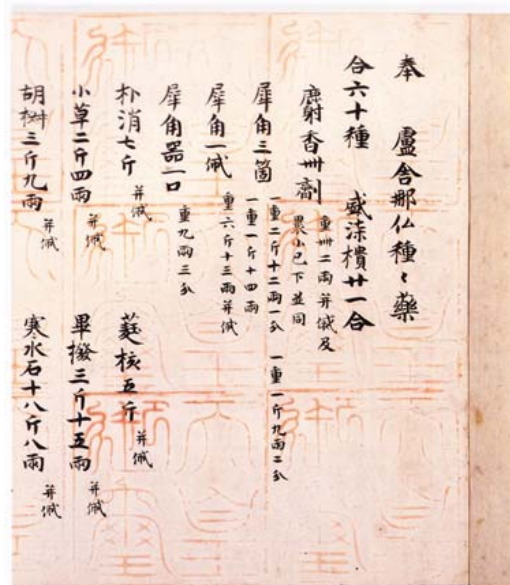 奉 盧舎那仏種〻藥
合六十種 盛漆樻廿一合
麝香卌劑 重卌二兩并帒及
裹小已下並同
犀角三箇 一重二斤十二兩一分 一重一斤九兩二分
一重一斤十四兩
犀角一帒 重六斤十三兩并帒
犀角器一口 重九兩三分
朴消七斤 并帒 蕤核五斤 并帒
小草二斤四兩 并帒 畢撥三斤十五兩 并帒
胡椒三斤九兩 并帒 寒水石十八斤八兩 并帒